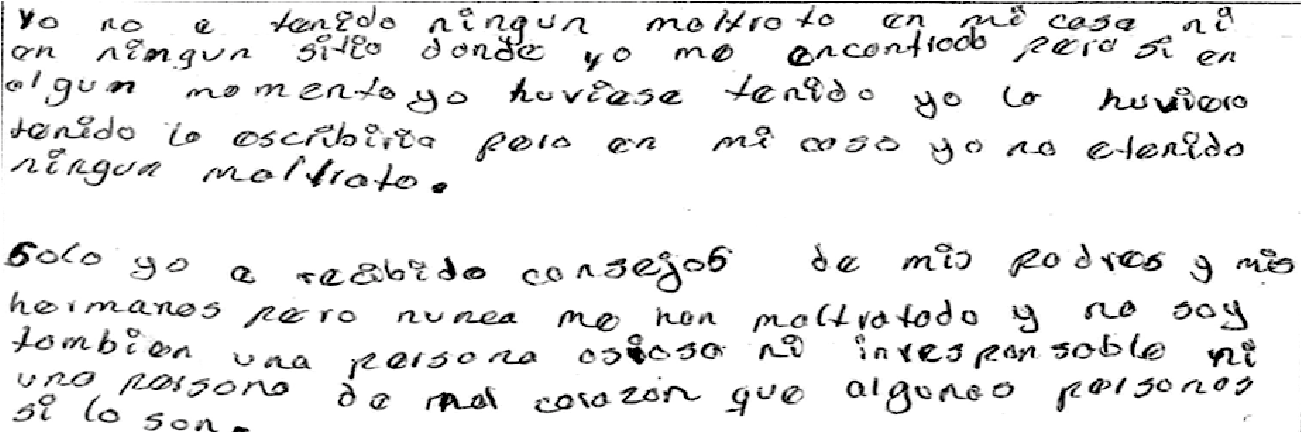 Yo no e tenido ningun maltrato en mi casa ni
en ningun sitio donde yo me encontrado pero si en
algun momento yo huviese tenido yo lo huviera
tenido lo escribiria pero en mi caso yo no etenido
ningun maltrato.
Solo yo e recibido consejos de mis padres y mis
hermanos pero nunca me han maltratado y no soy
tambien una persona osiosa ni invesponsable ni
una persona de mal corazón que algunas personas
si lo son.